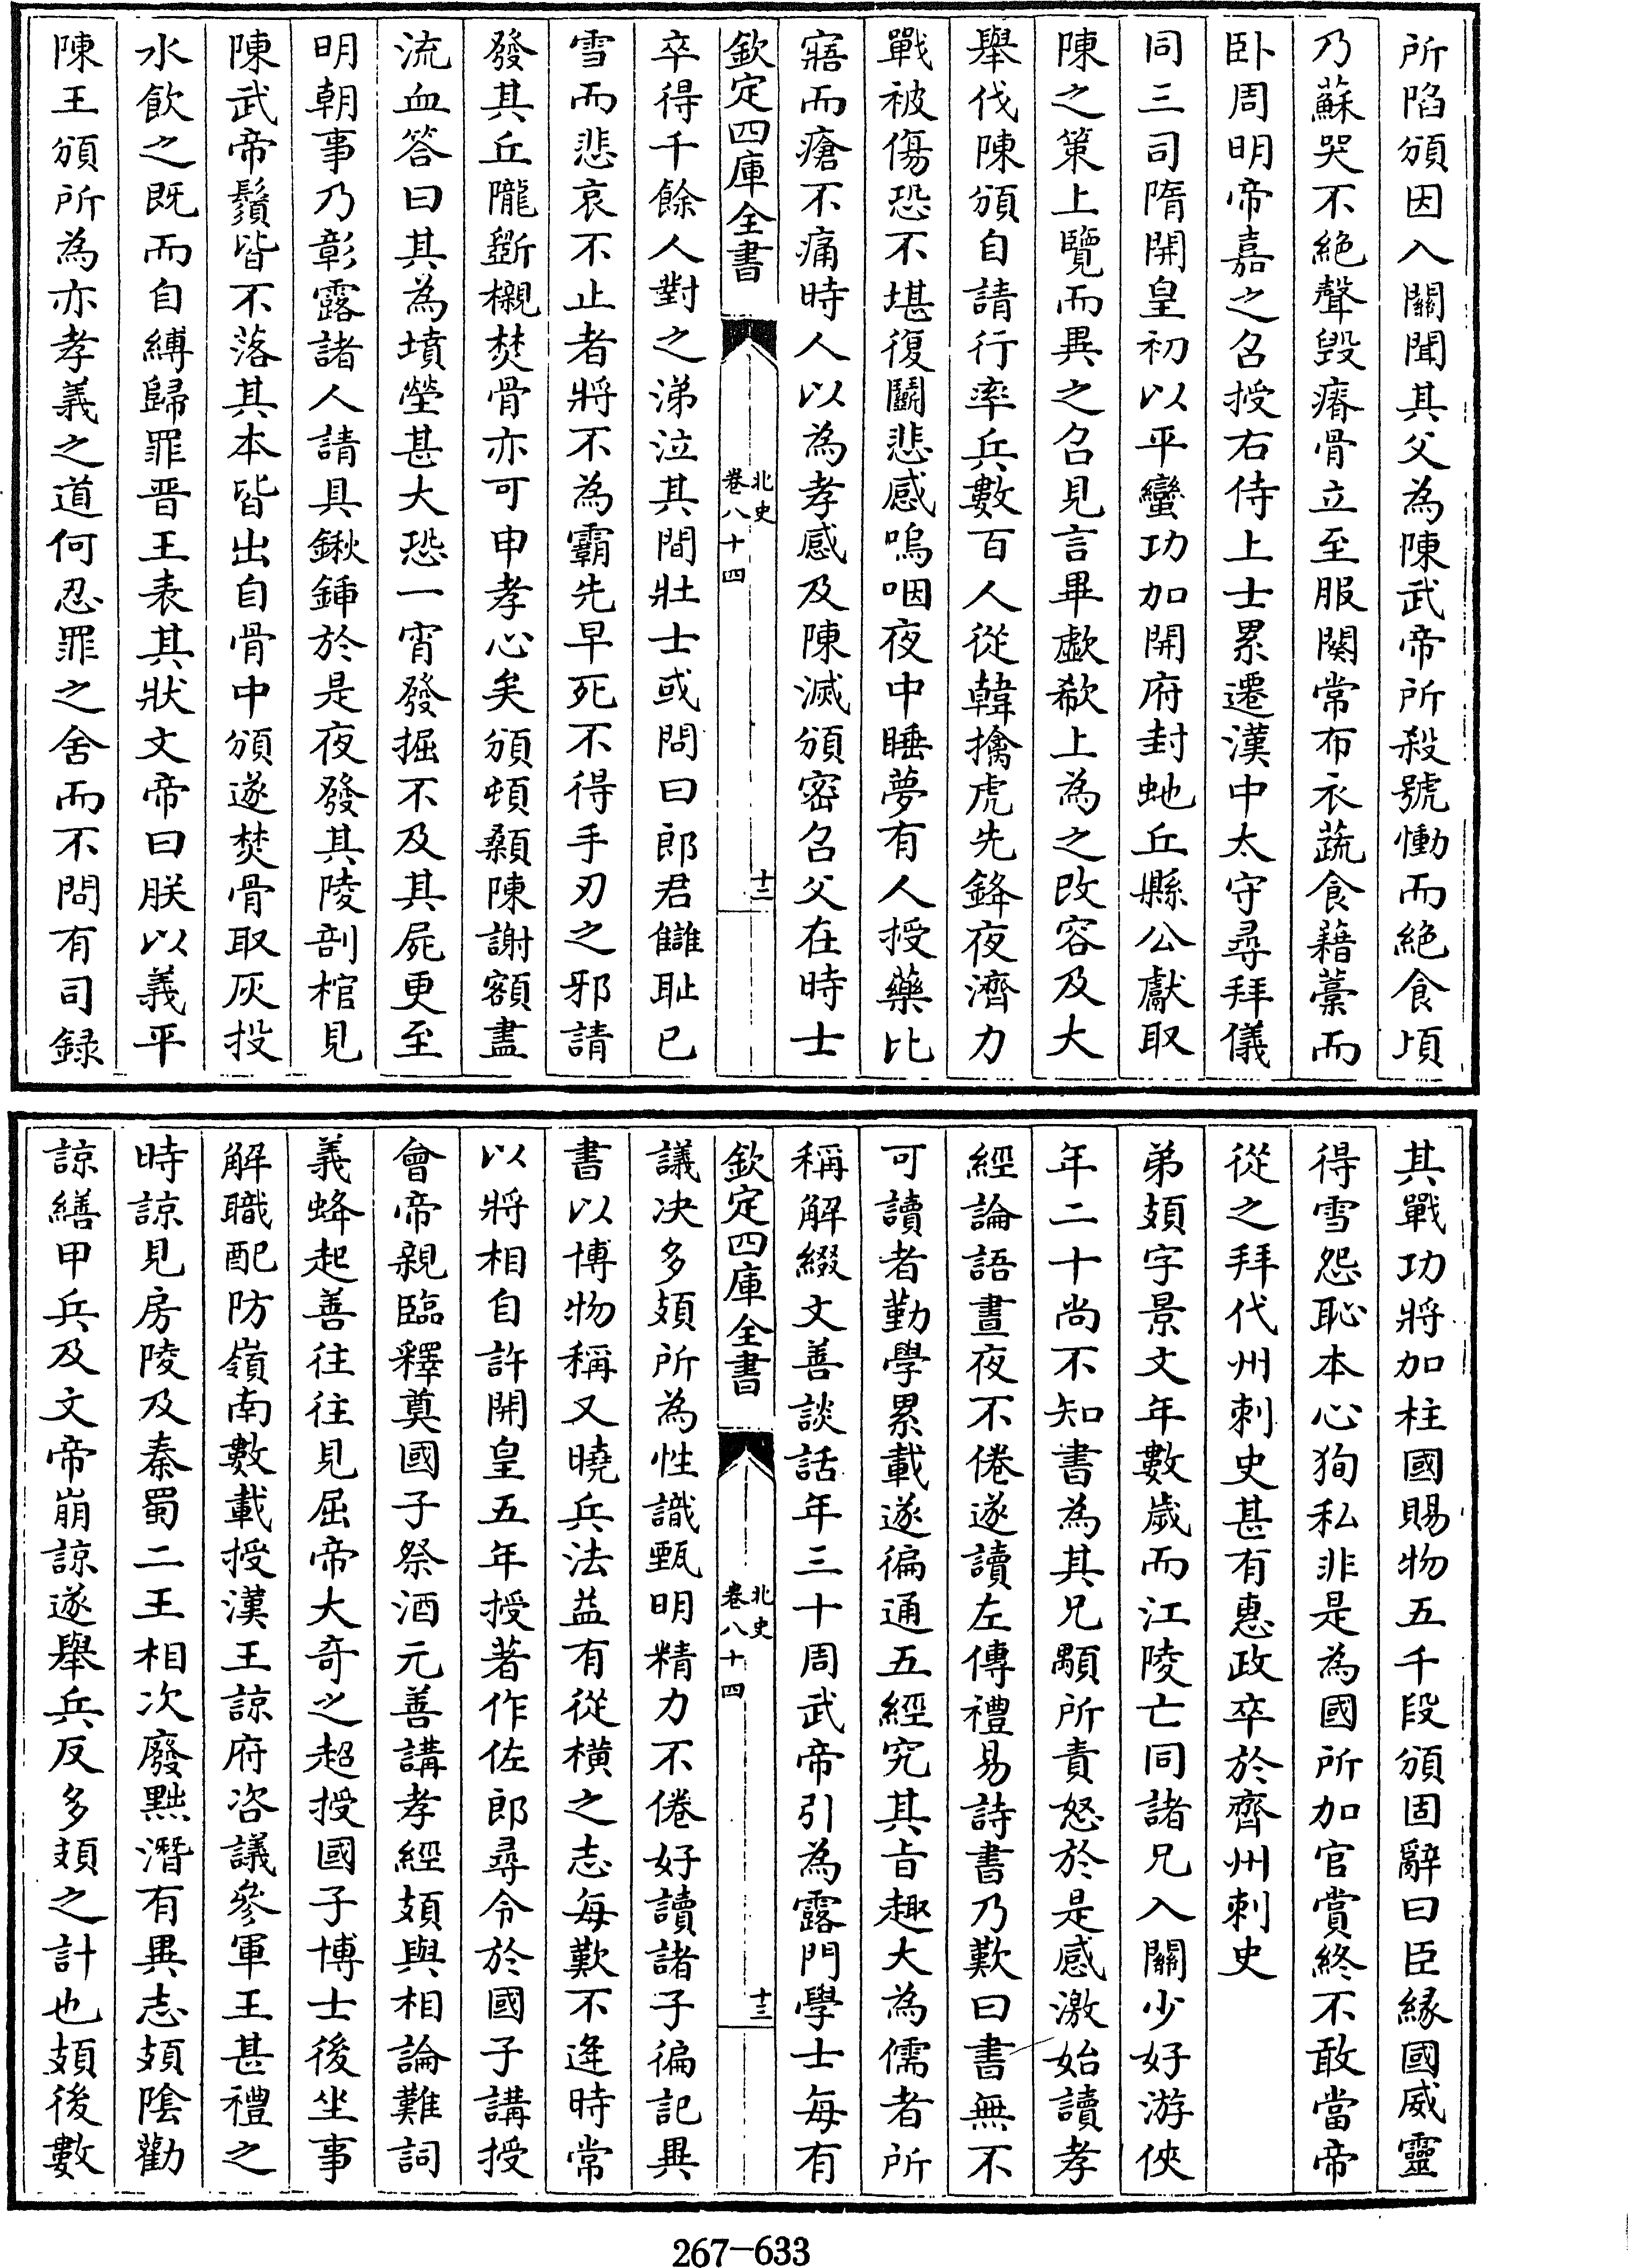 所陷頒因入關聞其父為陳武帝所殺號慟而絶食頃
乃蘇哭不絶聲毀瘠骨立至服闋常布衣蔬食藉藁而
卧周明帝嘉之召授右侍上士累遷漢中太守尋拜儀
同三司隋開皇初以平蠻功加開府封虵丘縣公獻取
陳之策上覽而異之召見言畢歔欷上為之改容及大
舉伐陳頒自請行率兵數百人從韓擒虎先鋒夜濟力
戰被傷恐不堪復鬬悲感嗚咽夜中睡夢有人授藥比
寤而瘡不痛時人以為孝感及陳滅頒密召父在時士
欽定四庫全書
北史
卷八十四
十二
卒得千餘人對之涕泣其間壯士或問曰郎君讎耻已
雪而悲哀不止者將不為霸先早死不得手刃之邪請
發其丘隴斵櫬焚骨亦可申孝心矣頒頓顙陳謝額盡
流血答曰其為墳塋甚大恐一宵發掘不及其屍更至
明朝事乃彰露諸人請具鍬鍤於是夜發其陵剖棺見
陳武帝鬚皆不落其本皆出自骨中頒遂焚骨取灰投
水飲之既而自縛歸罪晋王表其狀文帝曰朕以義平
陳王頒所為亦孝義之道何忍罪之舍而不問有司録
其戰功將加柱國賜物五千段頒固辭曰臣緣國威靈
得雪怨恥本心狥私非是為國所加官賞終不敢當帝
從之拜代州刺史甚有惠政卒於齊州刺史
弟頍字景文年數歲而江陵亡同諸兄入關少好游俠
年二十尚不知書為其兄顒所責怒於是感激始讀孝
經論語晝夜不倦遂讀左傳禮易詩書乃歎曰書無不
可讀者勤學累載遂徧通五經究其旨趣大為儒者所
稱解綴文善談話年三十周武帝引為露門學士每有
欽定四庫全書
北史
卷八十四
十三
議决多頍所為性識甄明精力不倦好讀諸子徧記異
書以博物稱又曉兵法益有從横之志每歎不逢時常
以將相自許開皇五年授著作佐郎尋令於國子講授
會帝親臨釋奠國子祭酒元善講孝經頍與相論難詞
義蜂起善往往見屈帝大奇之超授國子博士後坐事
解職配防嶺南數載授漢王諒府咨議參軍王甚禮之
時諒見房陵及秦蜀二王相次廢黜潛有異志頍陰勸
諒繕甲兵及文帝崩諒遂舉兵反多頍之計也頍後數
267-633